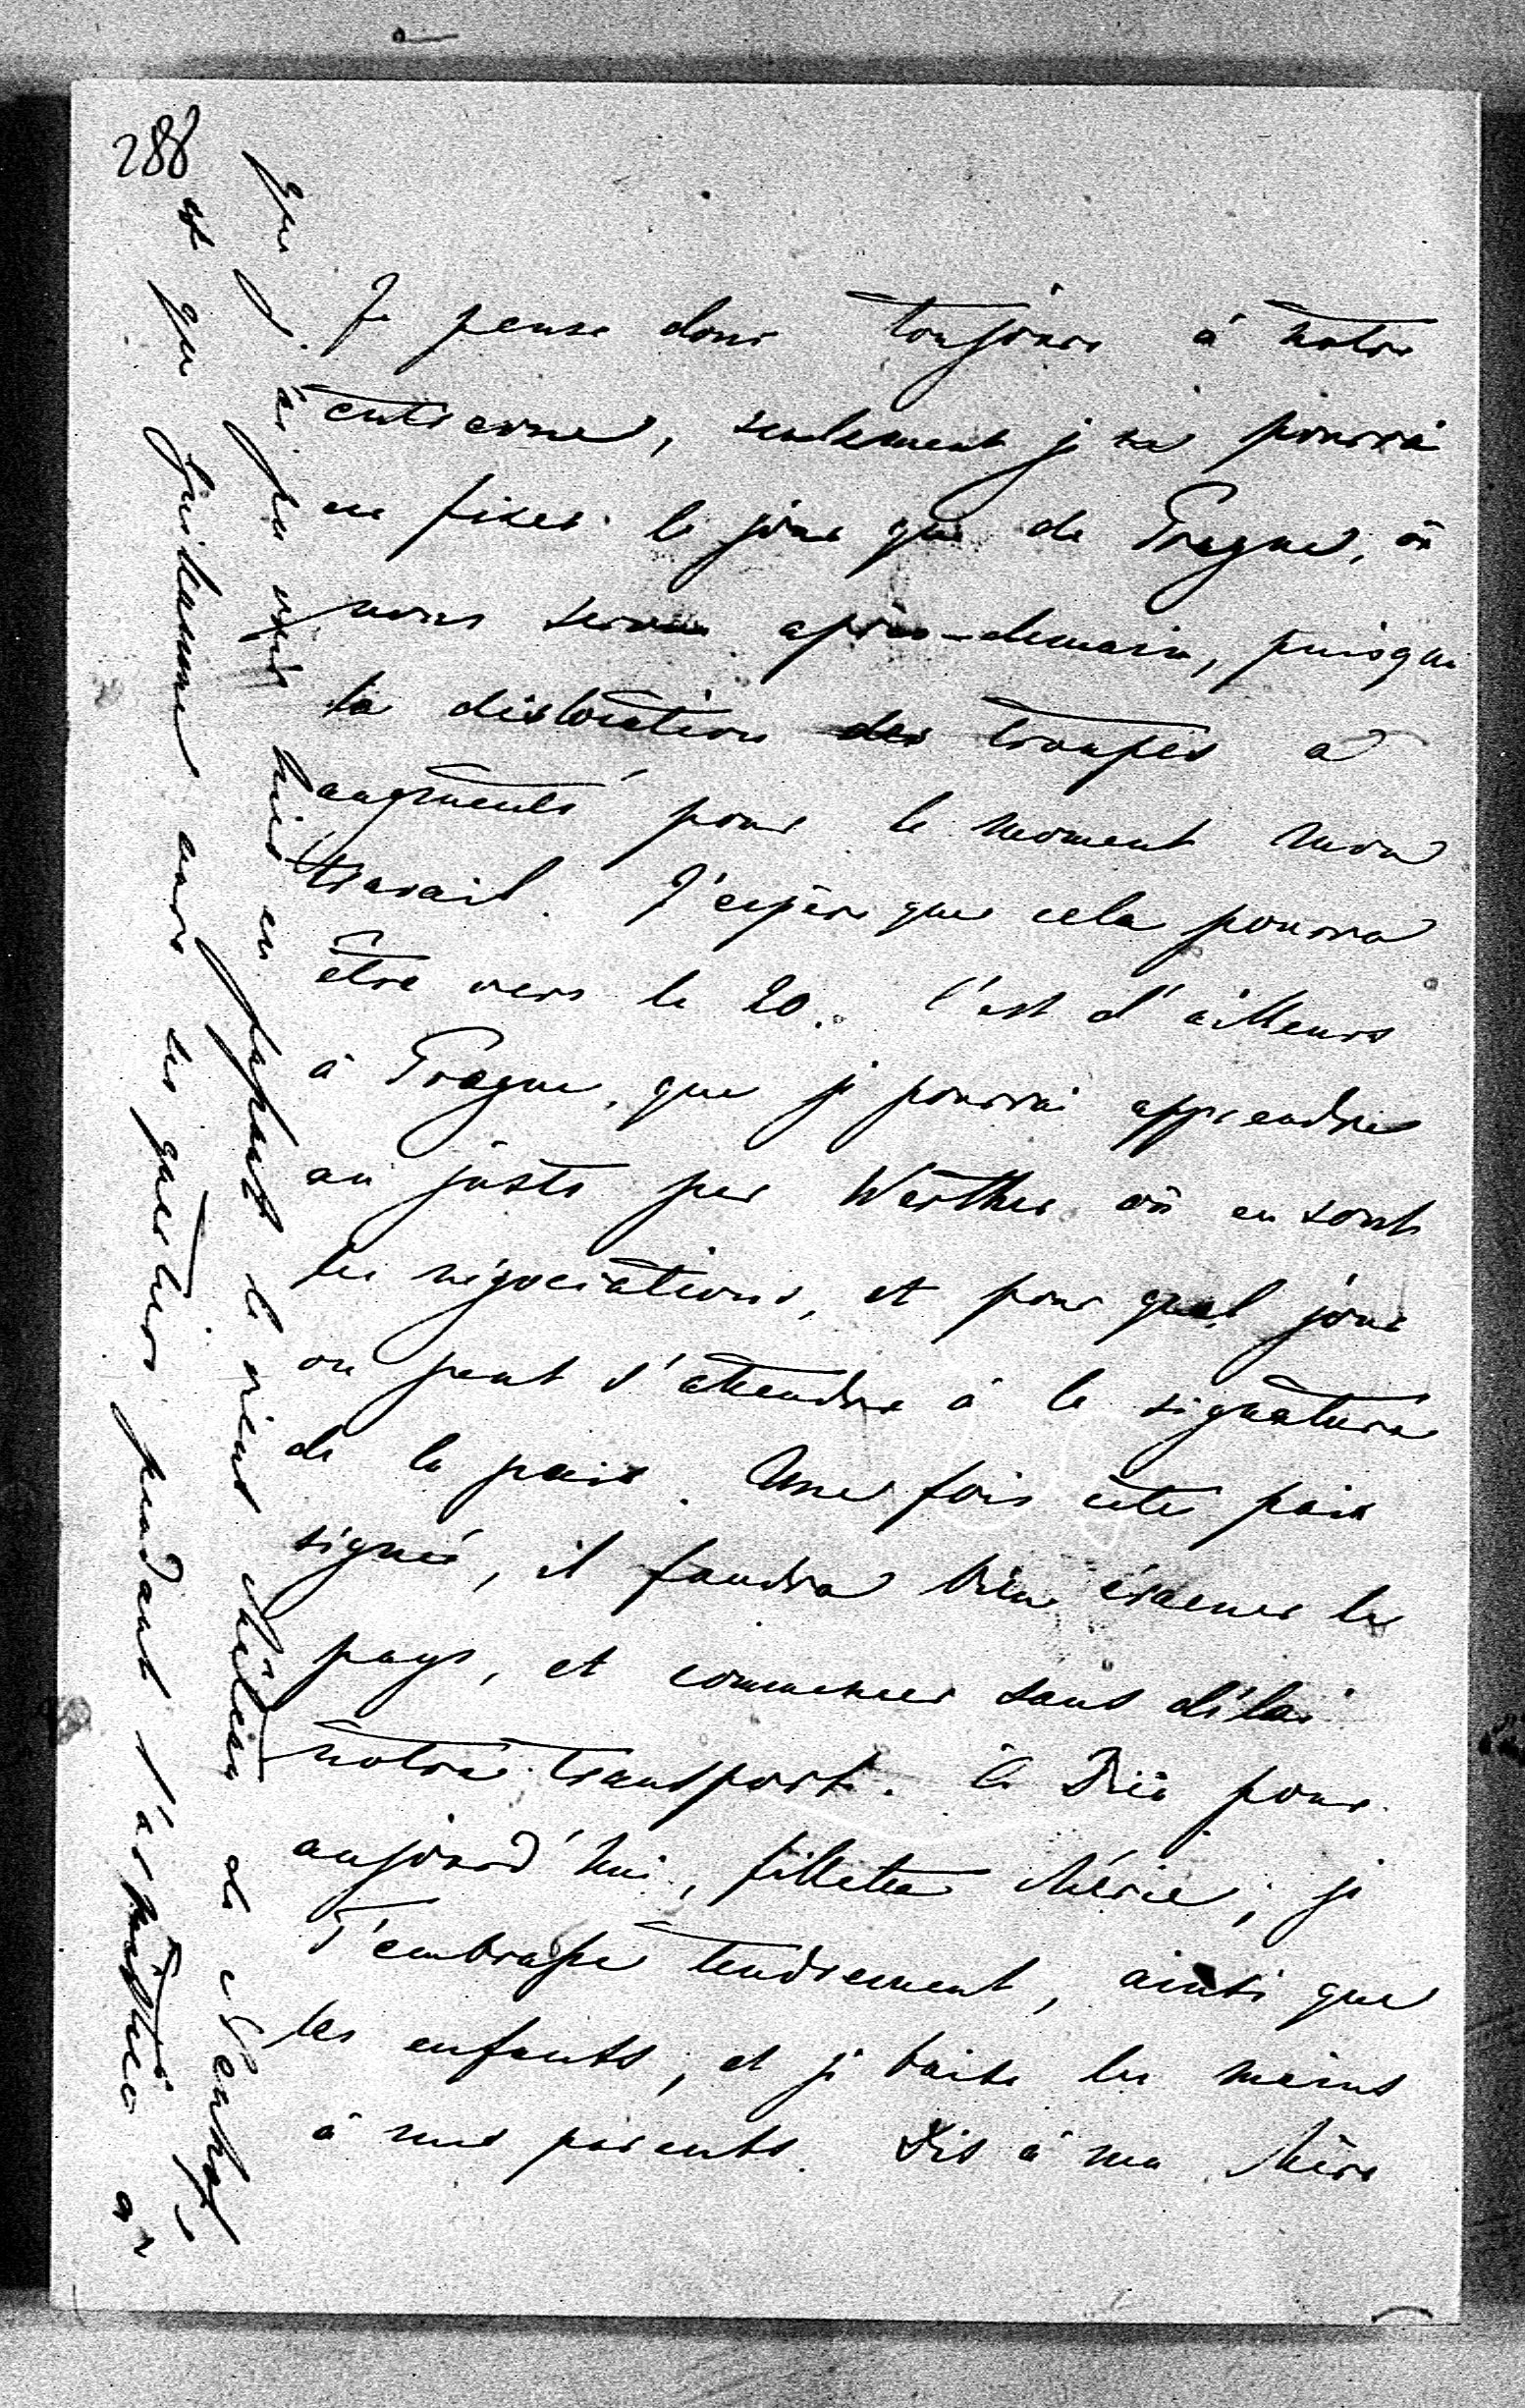 288
Je pense donc toujours à notre
entrevue, seulement je ne pourrai
en fixer le jour que de Prague, où
nous serons après-demain, puisque
la dislocation des troupes a
augmenté pour le moment mon
travail. J'espère que cela pourra
être vers le 20. C'est d'ailleurs
à Prague, que je pourrai apprendre
au juste par Werther où en sont
les négociations, et pour quel jour
on peut s'attendre à la signature
de la paix. Une fois cette paix
signée, il faudra bien évacuer le
pays, et commencer sans délai
notre transport. à Dieu pour
aujourd'hui, fillette chérie, je
t'embrasse tendrement, ainsi que
les enfants, et je baise les mains
à mes parents. Dis à ma Mère
que j'ai pu voir hier en passant le vieux château de
et que Guillaume avait ses quartiers pendant l'